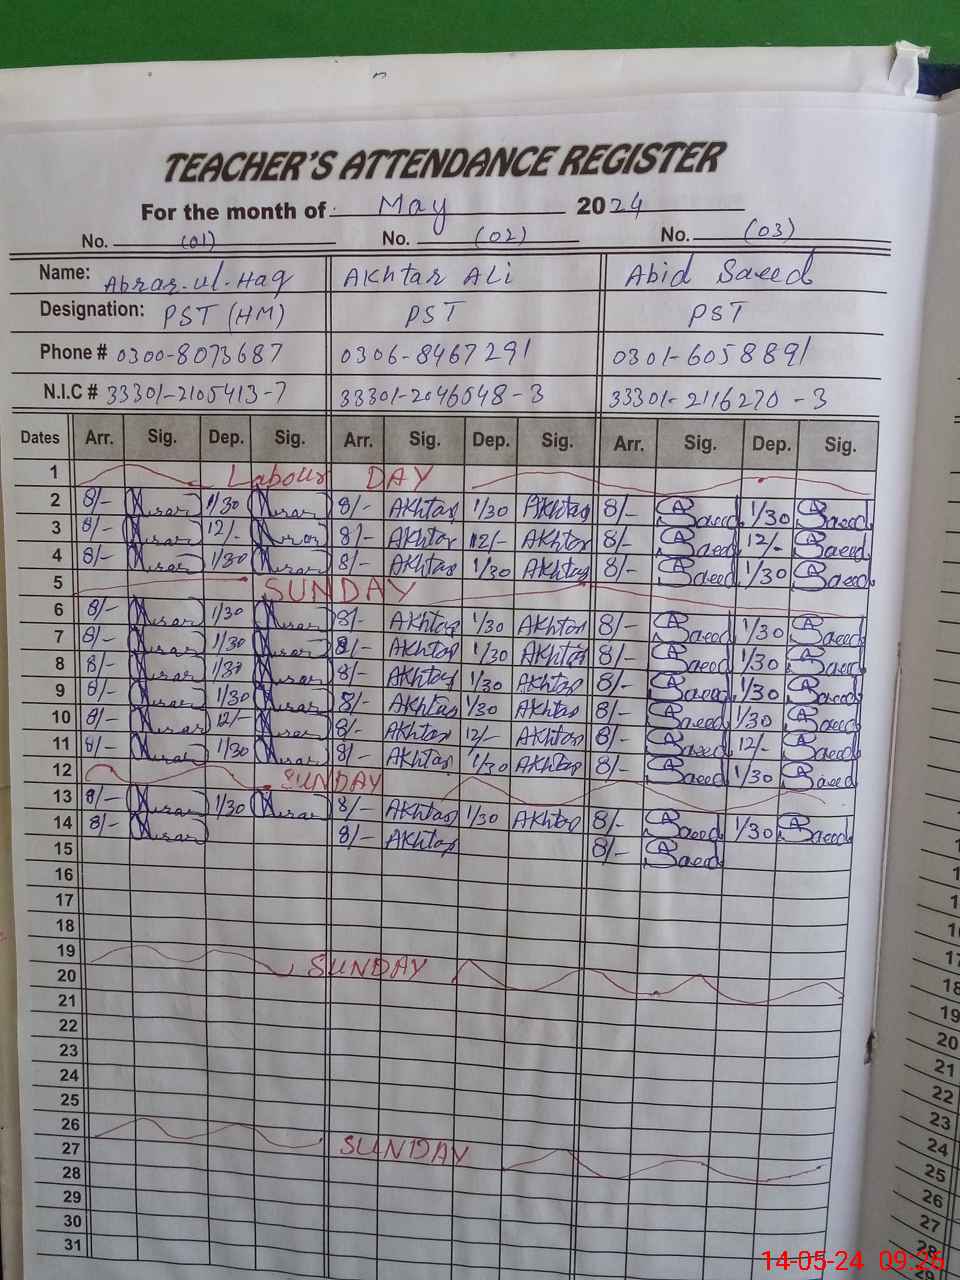 TEACHER'S ATTENDANCE REGISTER
For the month of May 2024
No. (01) No. (02) No. (03)
Name: Abrar-ul-Haq Akhtar Ali Abid Saeed
Designation: PST (HM) PST PST
Phone # 0300-8073687 0306-8467291 0301-6058891
N.I.C # 33301-2105413-7 33301-2046548-3 33301-2116270-3
Dates Arr. Sig. Dep. Sig. Arr. Sig. Dep. Sig. Arr. Sig. Dep. Sig.
1 Labour DAY
2 8/- 1/30 8/- Akhtar 1/30 Akhtar 8/- Saeed 1/30 Saeed
3 8/- 12/- 8/- Akhtar 12/- Akhtar 8/- Saeed 12/- Saeed
4 8/- 1/30 8/- Akhtar 1/30 Akhtar 8/- Saeed 1/30 Saeed
5 SUNDAY
6 8/- 1/30 8/- Akhtar 1/30 Akhtar 8/- Saeed 1/30 Saeed
7 8/- 1/30 8/- Akhtar 1/30 Akhtar 8/- Saeed 1/30 Saeed
8 8/- 1/30 8/- Akhtar 1/30 Akhtar 8/- Saeed 1/30 Saeed
9 8/- 1/30 8/- Akhtar 1/30 Akhtar 8/- Saeed 1/30 Saeed
10 8/- 12/- 8/- Akhtar 12/- Akhtar 8/- Saeed 12/- Saeed
11 8/- 1/30 8/- Akhtar 1/30 Akhtar 8/- Saeed 1/30 Saeed
12 SUNDAY
13 8/- 1/30 8/- Akhtar 1/30 Akhtar 8/- Saeed 1/30 Saeed
14 8/- 8/- Akhtar 8/- Saeed
15
16
17
18
19 SUNDAY
20
21
22
23
24
25
26 SUNDAY
27
28
29
30
31
17
18
19
20
21
22
23
24
25
26
27
28
14-05-24 09:26